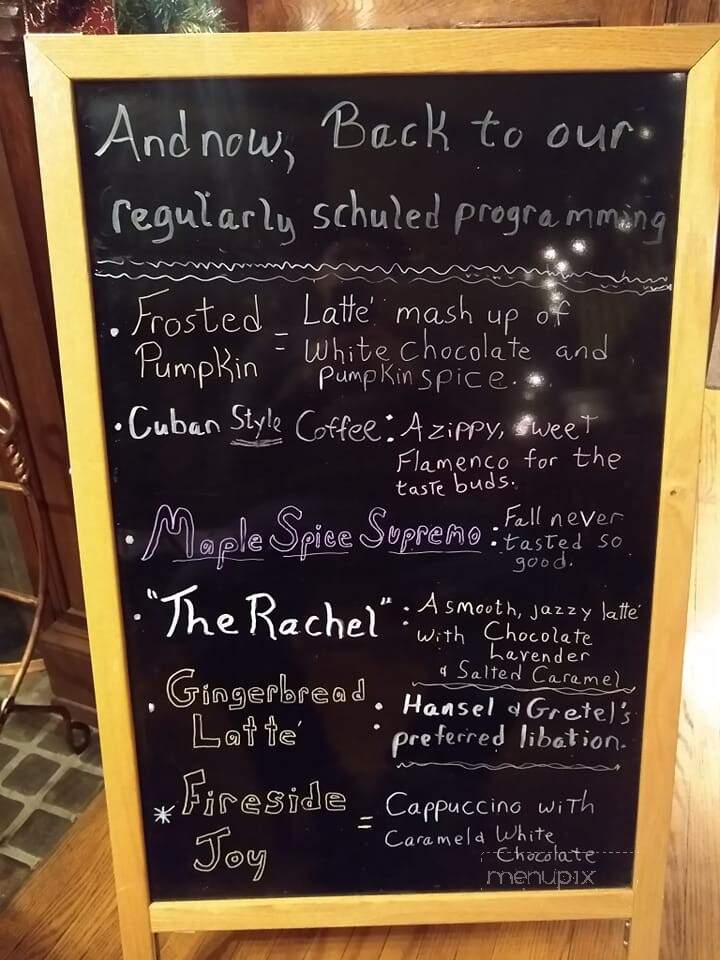 And now, Back to our
regularly schuled programming
• Frosted Pumpkin = Latté mash up of
White Chocolate and
Pumpkin spice.
• Cuban Style Coffee: A zippy, sweet
Flamenco for the
taste buds.
• Maple Spice Supremo: Fall never
tasted so
good.
• "The Rachel": A smooth, jazzy latté
with Chocolate
Lavender
& Salted Caramel
• Gingerbread Latté: Hansel & Gretel's
preferred libation.
* Fireside Joy = Cappuccino with
Caramel & White
Chocolate
menupix